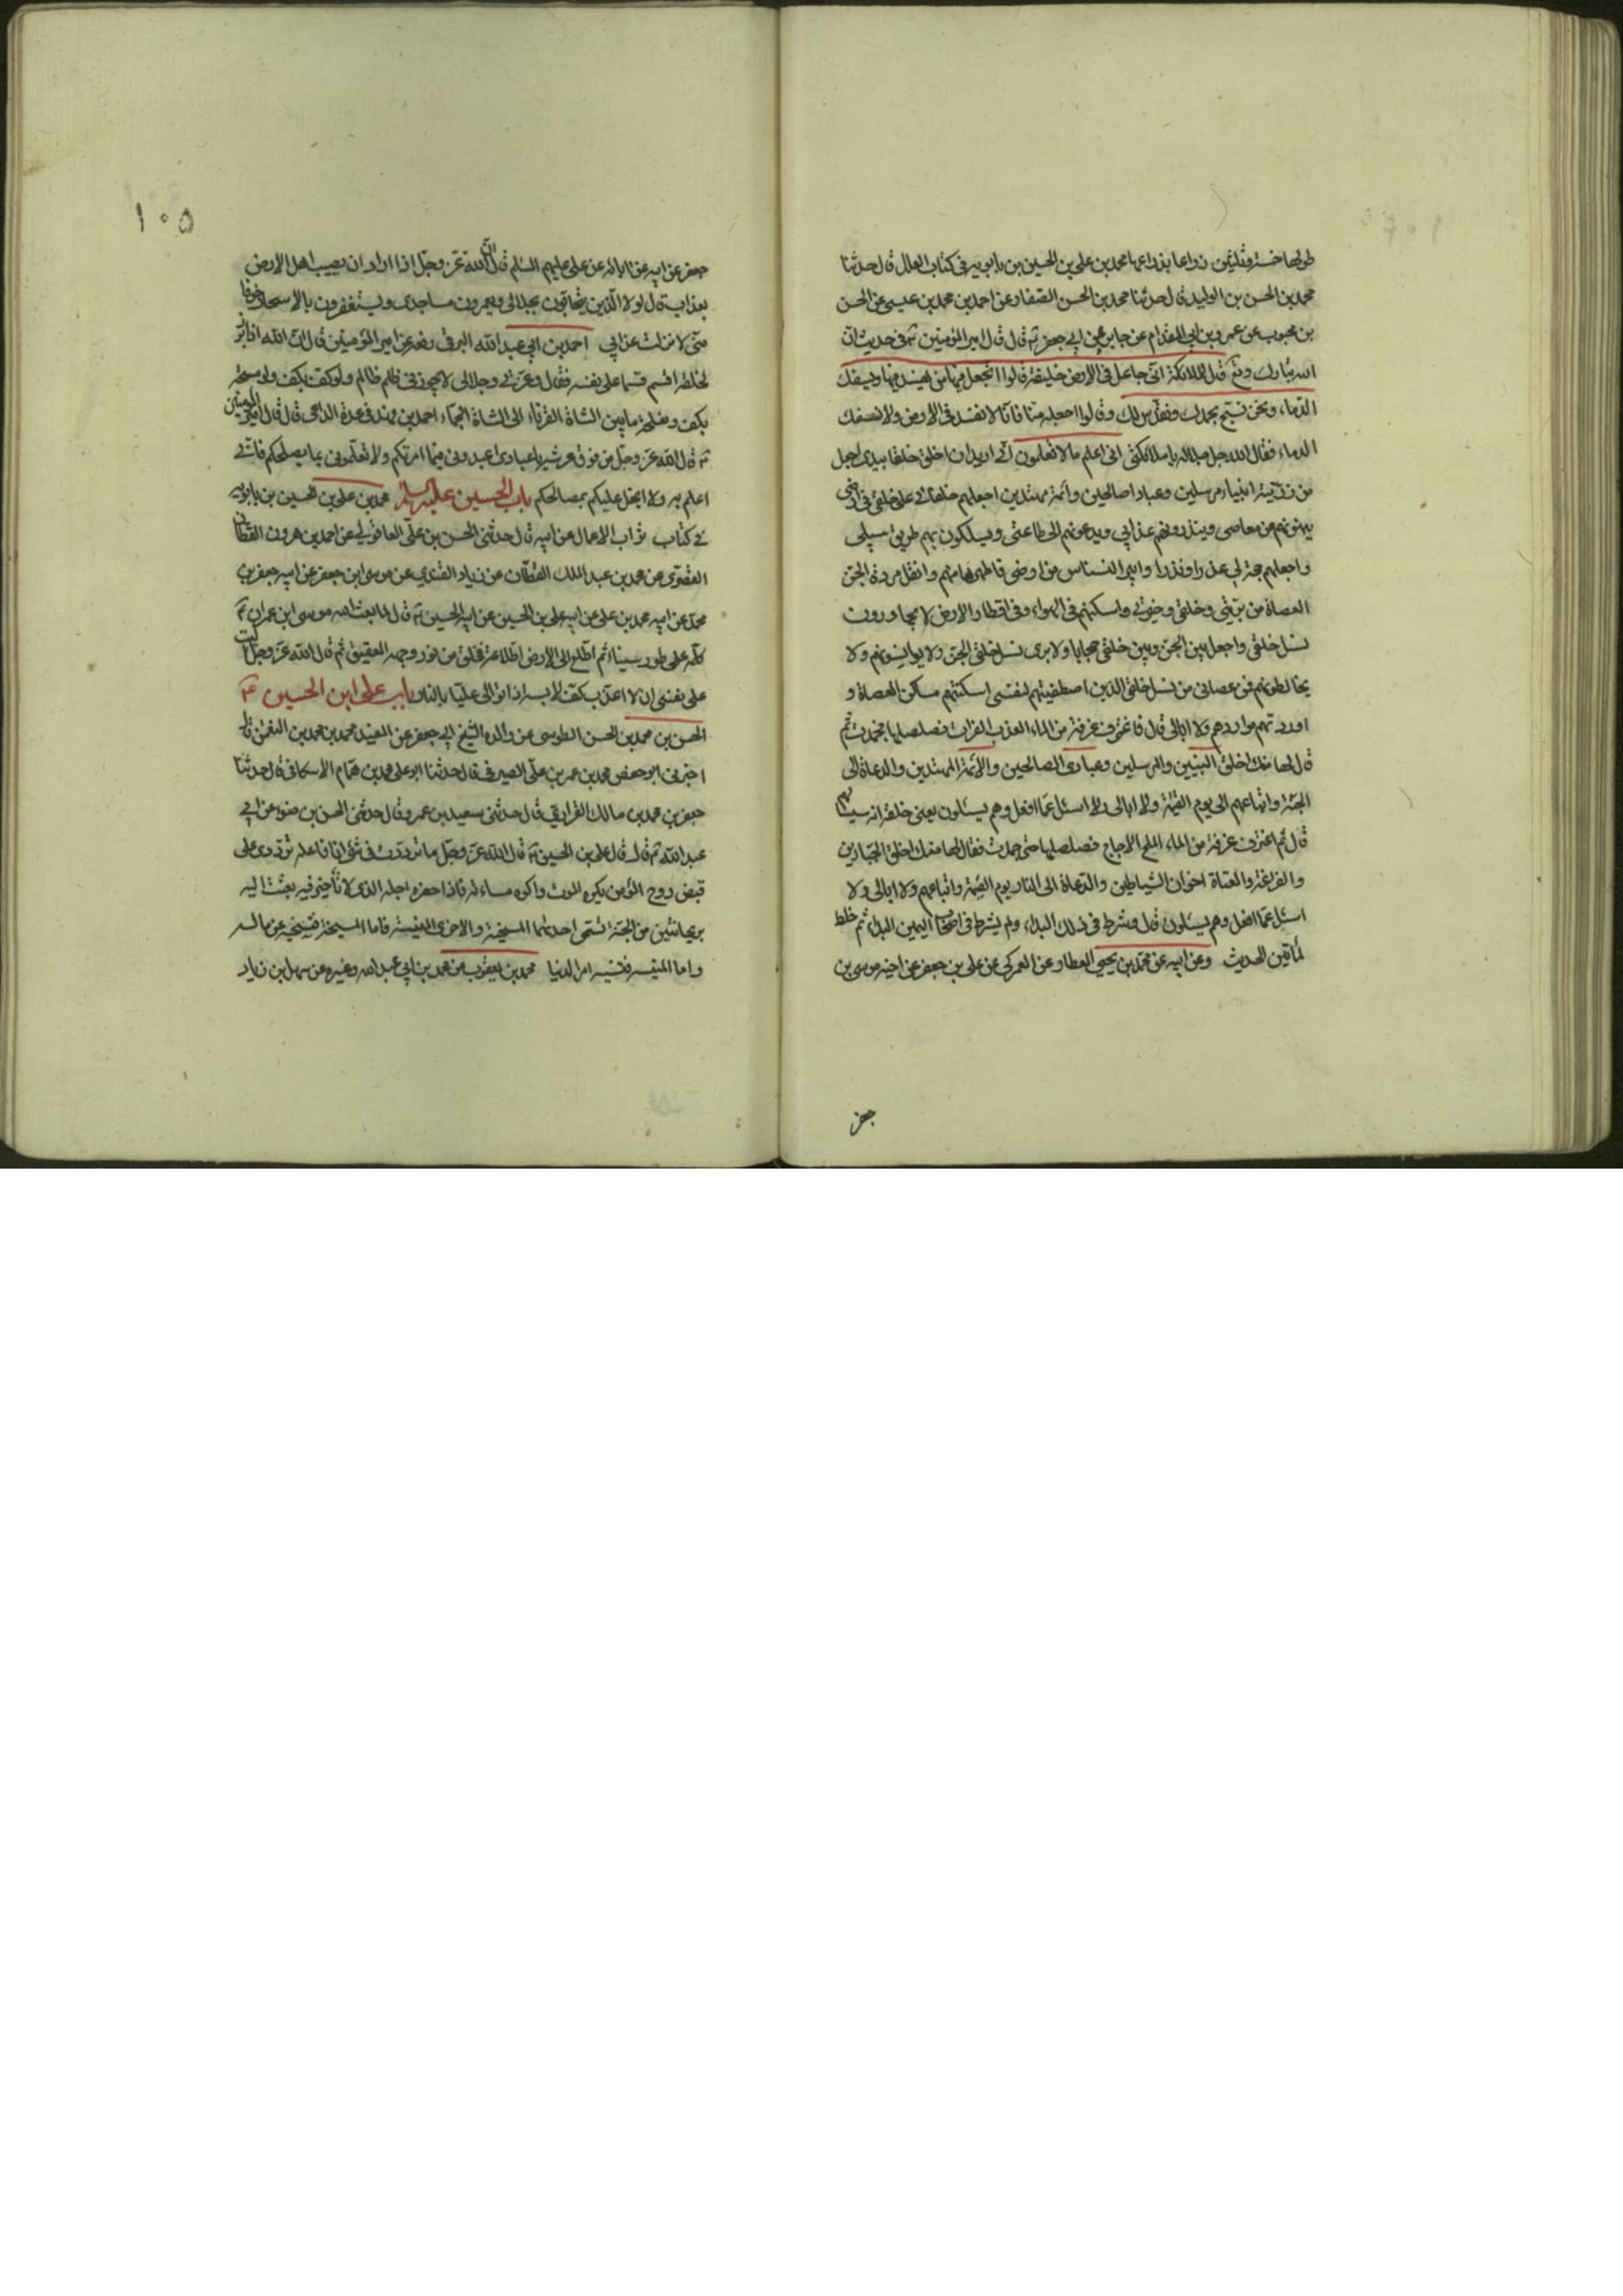 طولها خمسة وثلثين ذراعا بذراعها محمد بن علي بن الحسين بن بابويه في كتاب العلل قال حدثنا
محمد بن الحسن بن الوليد قال حدثنا محمد بن الحسن الصفار عن احمد بن محمد بن عيسى عن الحسن
بن محبوب عن عمرو بن ابي المقدام عن جابر عن ابي جعفر ع قال قال امير المؤمنين ع في حديث ان
الله تبارك وتع قال للملائكة اني جاعل في الارض خليفة قالوا اتجعل فيها من يفسد فيها ويسفك
الدماء ونحن نسبح بحمدك ونقدس لك وقالوا اجعله منا فانا لا نفسد في الارض ولا نسفك
الدماء فقال الله جل جلاله يا ملائكتي اني اعلم ما لا تعلمون اني اريد ان اخلق خلقا بيدي اجعل
من ذريته انبياء مرسلين وعبادا صالحين وائمة مهتدين اجعلهم خلفائي على خلقي في ارضي
ينهونهم عن معاصي وينذرونهم عذابي ويدعونهم الى طاعتي ويسلكون بهم طريق سبيلي
واجعلهم حجة لي عذرا ونذرا وابين النسناس من ارضي فاطهرها منهم وانقل مردة الجن
العصاة من بريتي وخلقي وخيرتي واسكنهم في الهواء وفي اقطار الارض لا يجاورون
نسل خلقي واجعل بين الجن وبين خلقي حجابا ولا يرى نسل خلقي الجن ولا يوانسونهم ولا
يخالطونهم فمن عصاني من نسل خلقي الذين اصطفيتهم لنفسي اسكنتهم مساكن العصاة و
اوردتهم مواردهم ولا ابالي قال فاغترف غرفة من الماء العذب الفرات فصلصلها فجمدت ثم
قال لها منك اخلق النبيين والمرسلين وعبادي الصالحين والائمة المهتدين والدعاة الى
الجنة واتباعهم الى يوم القيمة ولا ابالي ولا اسئل عما افعل وهم يسئلون يعني خلقه انه سيسئلهم
قال ثم اغترف غرفة من الماء المالح الاجاج فصلصلها حتى جمدت فقال لها منك اخلق الجبارين
والفراعنة والعتاة اخوان الشياطين والدعاة الى النار يوم القيمة واتباعهم ولا ابالي ولا
اسئل عما افعل وهم يسئلون قال وشرط في ذلك البداء ولم يشرط في اصحاب اليمين البداء ثم خلط
المائين الحديث وعن ابيه عن محمد بن يحيى العطار عن العمركي عن علي بن جعفر عن اخيه موسى بن
جعفر
١٠٥
جعفر عن ابيه عن ابائه عن علي عليهم السلم قال ان الله عز وجل اذا اراد ان يصيب اهل الارض
بعذاب قال لولا الذين يتحابون بجلالي ويعمرون مساجدي ويستغفرون بالاسحار خوفا
مني لانزلت عذابي احمد بن ابي عبد الله البرقي رفعه عن امير المؤمنين قال ان الله اذا برز
لخلقه اقسم قسما على نفسه فقال وعزتي وجلالي لا يجوزني ظلم ظالم ولو كف بكف ولو مسحة
بكف ونطحة ما بين الشاة القرناء الى الشاة الجماء احمد بن فهد في عدة الداعي قال قال امير المؤمنين
ع قال الله عز وجل من فوق عرشه يا عبادي اعبدوني فيما امرتكم ولا تعلموني بما يصلحكم فاني
اعلم به ولا ابخل عليكم بمصالحكم باب الحسين عليه السلم محمد بن علي بن الحسين بن بابويه
في كتاب ثواب الاعمال عن ابيه قال حدثني الحسن بن علي العاقولي عن احمد بن هرون القطان
عن محمد بن عبد الملك القطان عن زياد القندي عن موسى ابن جعفر عن ابيه جعفر بن
محمد عن ابيه محمد بن علي عن ابيه علي بن الحسين عن ابيه الحسين ع قال لما بعث الله موسى ابن عمران ع
كلمه على طور سيناء ثم اطلع الى الارض اطلاعة فخلق من نور وجهه العقيق ثم قال الله عز وجل اليت
على نفسي ان لا اعذب كف لابسه اذا توالى عليا بالنار باب علي ابن الحسين ع
الحسن بن محمد بن الحسن الطوسي عن والده الشيخ ابي جعفر عن المفيد محمد بن محمد بن النعمن قال
اخبرني ابو حفص محمد بن عمر بن علي الصيرفي قال حدثنا ابو علي محمد بن همام الاسكافي قال حدثنا
جعفر بن محمد بن مالك الفزاري قال حدثني سعيد بن عمر وقال حدثني الحسن بن ضوء عن ابي
عبد الله ع قال قال علي بن الحسين ع قال الله عز وجل ما ترددت في شئ انا فاعله ترددي على
قبض روح المؤمن يكره الموت واكره مساءته فاذا حضره اجله الذي لا تأخير فيه بعثت اليه
بريحانتين من الجنة تسمى احديهما المسخية والاخرى المنسية فاما المسخية فتسخيه عن ماله
واما المنسية فتنسيه امر الدنيا محمد بن يعقوب عن محمد بن ابي عبد الله وغيره عن سهل بن زياد